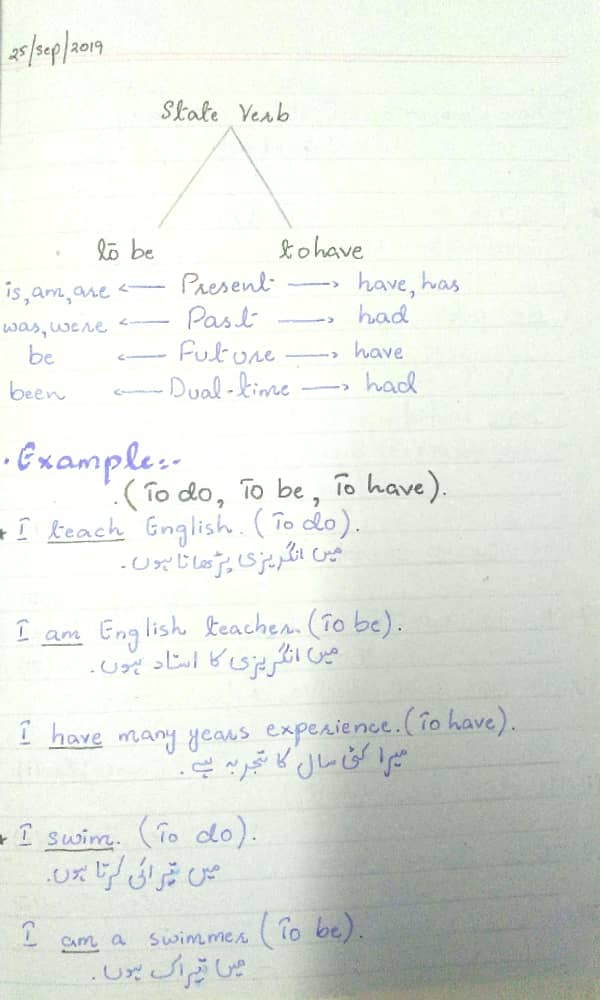 25/Sep/2019
State Verb
to be    to have
is, am, are ← Present → have, has
was, were ← Past → had
be ← Future → have
been ← Dual-time → had
• Example:-
.(To do, To be, To have).
* I teach English. (To do).
میں انگریزی پڑھاتا ہوں۔
I am English teacher. (To be).
میں انگریزی کا استاد ہوں۔
I have many years experience. (To have).
میرا کئی سال کا تجربہ ہے۔
* I swim. (To do).
میں تیرائی کرتا ہوں۔
I am a swimmer (To be).
میں تیراک ہوں۔